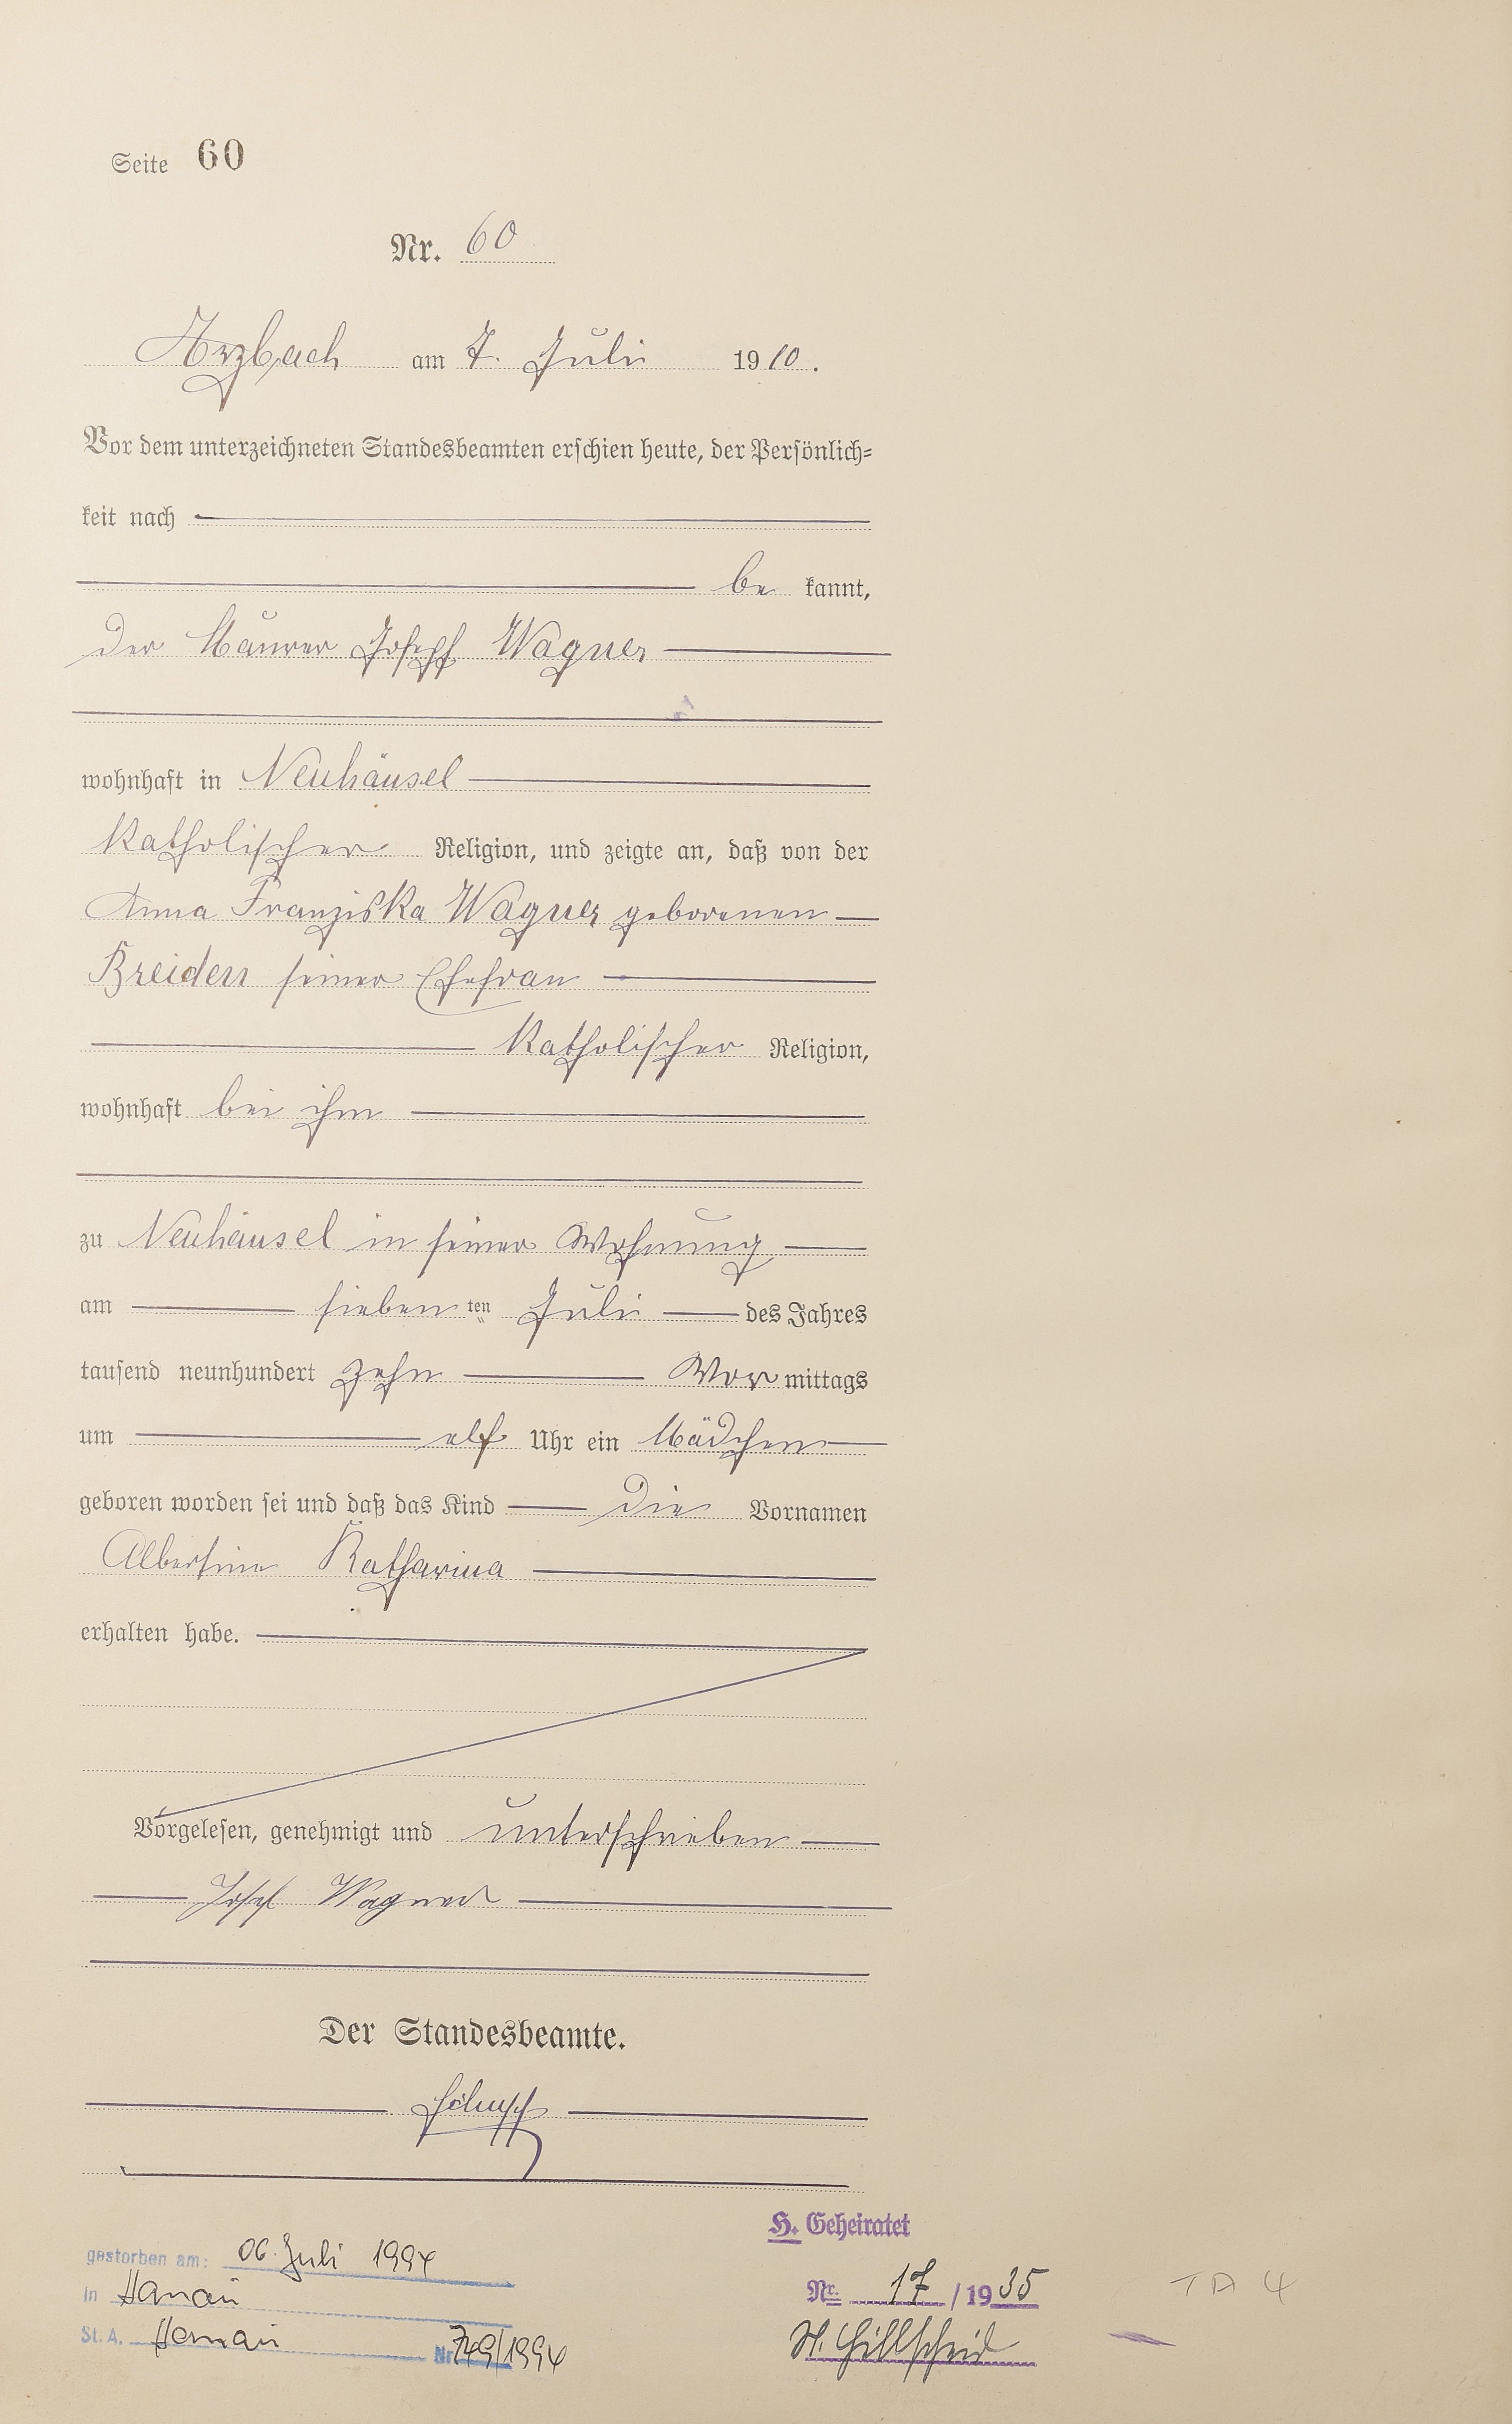 Seite 60
Nr. 60
Arzbach am 7. Juli 1910.
Vor dem unterzeichneten Standesbeamten erschien heute, der Persönlich-
keit nach
be kannt,
der Maurer Joseph Wagner
wohnhaft in Neuhäusel
katholischer Religion, und zeigte an, daß von der
Anna Franziska Wagner geborenen
Breiden seiner Ehefrau
katholischer Religion,
wohnhaft bei ihm
zu Neuhäusel in seiner Wohnung
am sieben ten Juli des Jahres
tausend neunhundert zehn Vor mittags
um elf Uhr ein Mädchen
geboren worden sei und daß das Kind die Vornamen
Albertine Katharina
erhalten habe.
Vorgelesen, genehmigt und unterschrieben
Josef Wagner
Der Standesbeamte.
H. Geheiratet
gestorben am: 06. Juli 1994
Nr. 17 / 1935
in Hanau
H. Hillscheid
St. A. Hanau Nr. 749/1994
TA 4